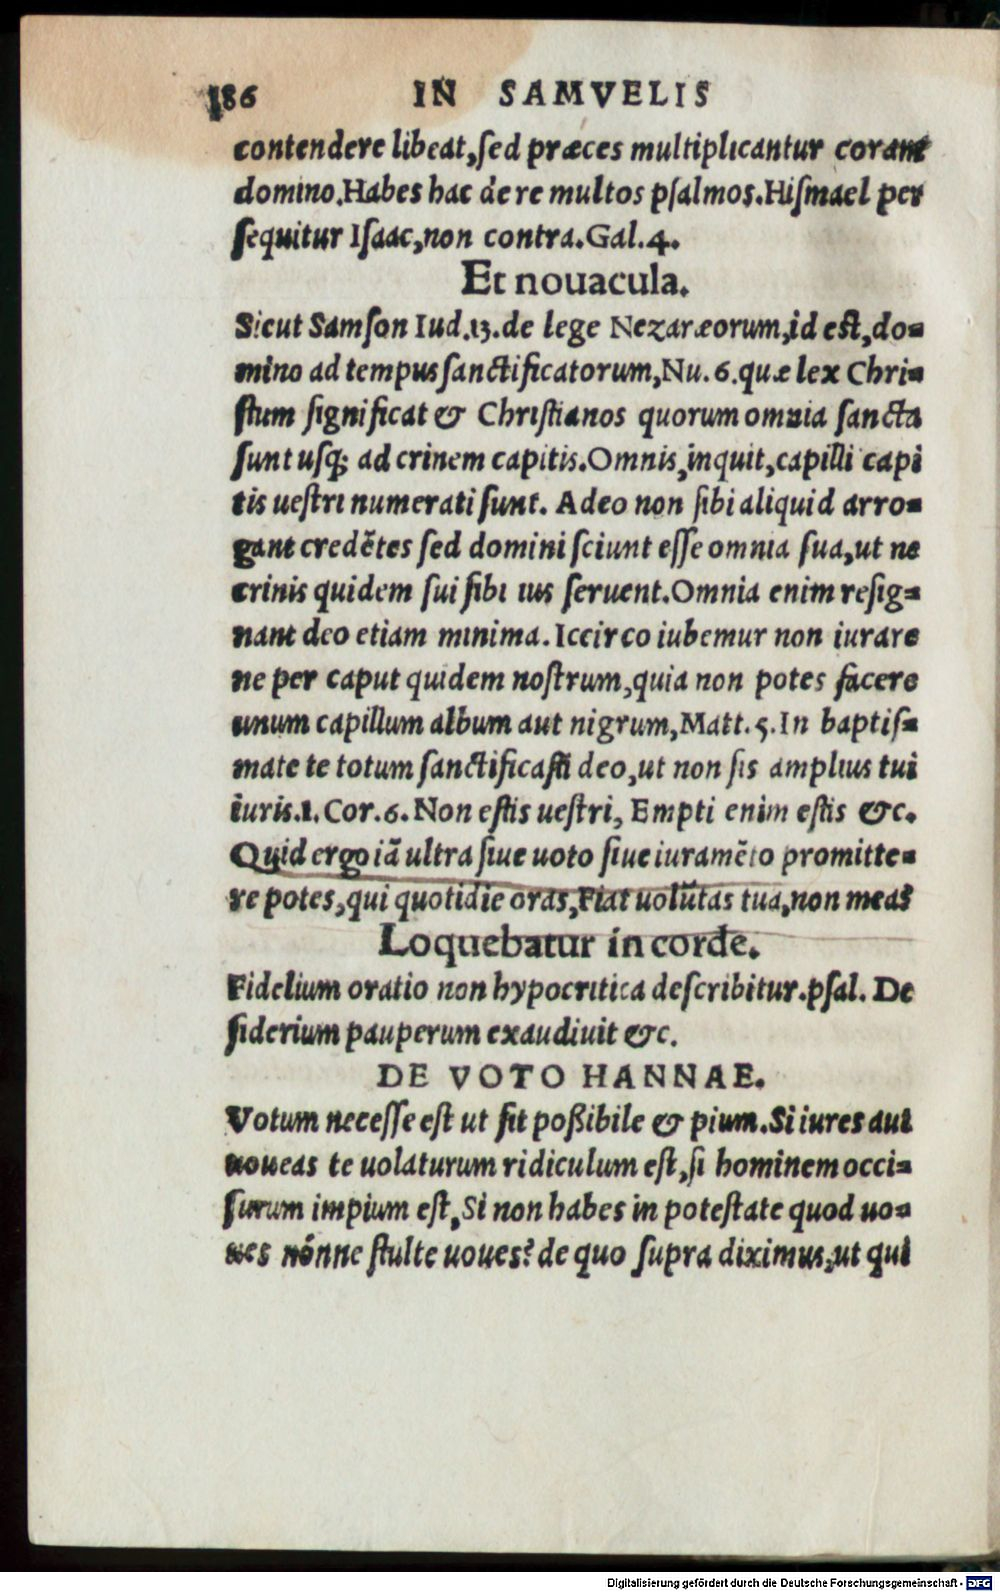 186 IN SAMVELIS
contendere libeat,ſed præces multiplicantur coram
domino.Habes hac de re multos pſalmos.Hiſmael per
ſequitur Iſaac,non contra.Gal.4.
Et nouacula.
Sicut Samſon Iud.13.de lege Nezaræorum,id eſt,do-
mino ad tempus ſanctificatorum,Nu.6.quæ lex Chri-
ſtum ſignificat & Chriſtianos quorum omnia ſancta
ſunt uſq; ad crinem capitis.Omnis,inquit,capilli capi
tis ueſtri numerati ſunt. Adeo non ſibi aliquid arro-
gant credẽtes ſed domini ſciunt eſſe omnia ſua,ut ne
crinis quidem ſui ſibi ius ſeruent.Omnia enim reſig-
nant deo etiam minima. Iccirco iubemur non iurare
ne per caput quidem noſtrum,quia non potes facere
unum capillum album aut nigrum,Matt.5.In baptiſ-
mate te totum ſanctificaſti deo,ut non ſis amplius tui
iuris.1.Cor.6.Non eſtis ueſtri, Empti enim eſtis &c.
Quid ergo iã ultra ſiue uoto ſiue iuramẽto promitte-
re potes,qui quotidie oras,Fiat uolũtas tua,non mea?
Loquebatur in corde.
Fidelium oratio non hypocritica deſcribitur.pſal. De
ſiderium pauperum exaudiuit &c.
DE VOTO HANNAE.
Votum neceſſe eſt ut ſit poßibile & pium.Si iures aut
uoueas te uolaturum ridiculum eſt,ſi hominem occi-
ſurum impium eſt,Si non habes in poteſtate quod uo-
ues nónne ſtulte uoues? de quo ſupra diximus,ut qui
Digitalisierung gefördert durch die Deutsche Forschungsgemeinschaft - DFG